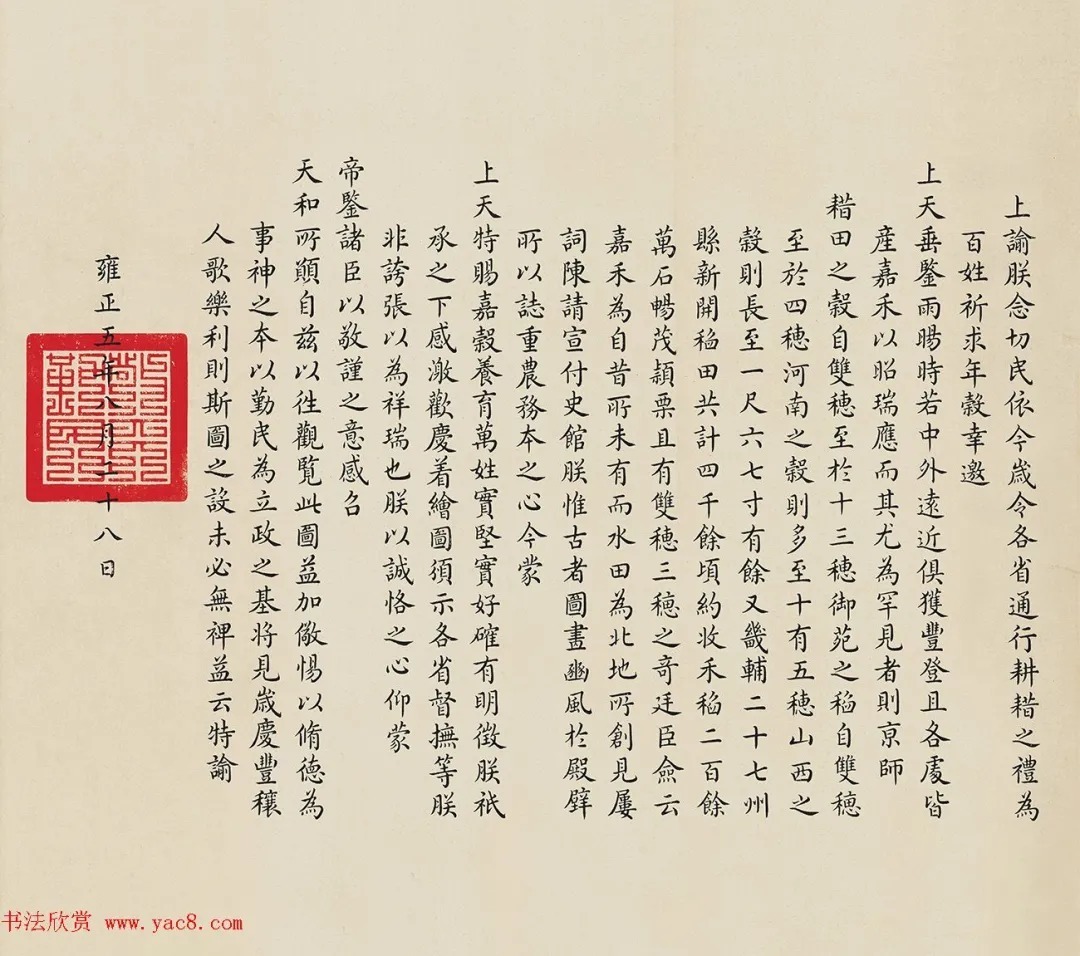 上諭朕念切民依今歲令各省通行耕耤之禮為
百姓祈求年穀幸邀
上天垂鑒雨暘時若中外遠近俱獲豐登且各處皆
產嘉禾以昭瑞應而其尤為罕見者則京師
耤田之穀自雙穗至於十三穗御苑之稻自雙穗
至於四穗河南之穀則多至十有五穗山西之
穀則長至一尺六七寸有餘又畿輔二十七州
縣新開稻田共計四千餘頃約收禾稻二百餘
萬石暢茂穎栗且有雙穗三穗之奇廷臣僉云
嘉禾為自昔所未有而水田為北地所創見屢
詞陳請宣付史館朕惟古者圖畫豳風於殿壁
所以誌重農務本之心今蒙
上天特賜嘉穀養育萬姓實堅實好確有明徵朕祇
承之下感激歡慶着繪圖須示各省督撫等朕
非誇張以為祥瑞也朕以誠恪之心仰蒙
帝鑒諸臣以敬謹之意感召
天和所顚自茲以往觀覽此圖益加儆惕以脩德為
事神之本以勤民為立政之基將見歲慶豐穰
人歌樂利則斯圖之設未必無裨益云特諭
雍正五年八月二十八日
书法欣赏 www.yac8.com